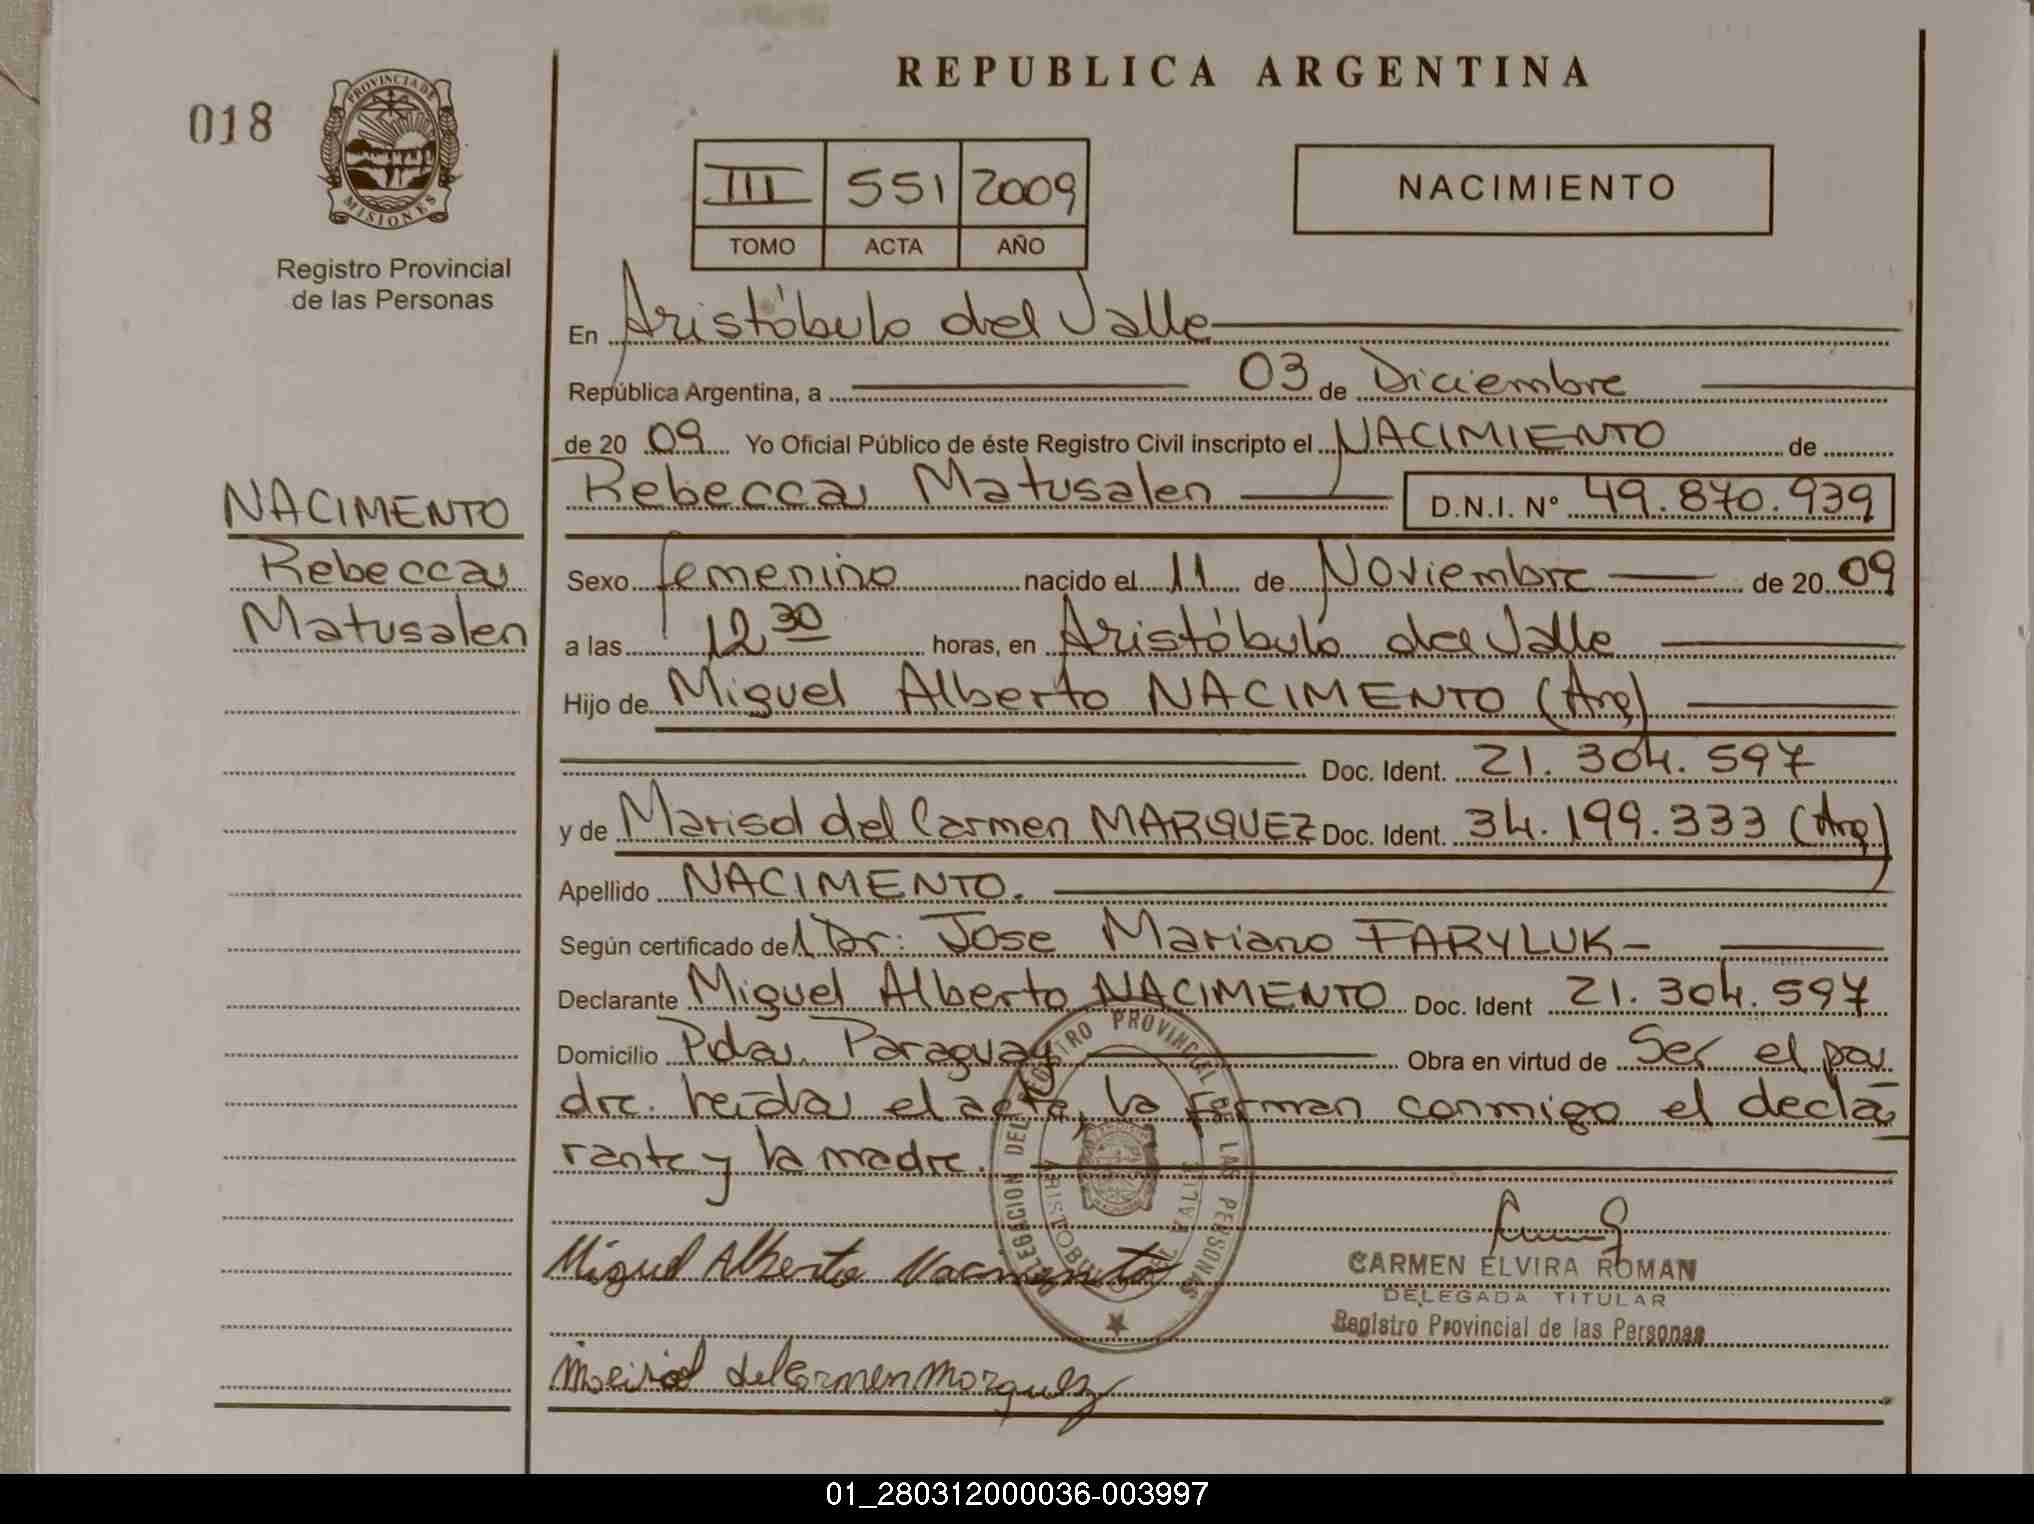 REPUBLICA ARGENTINA
018
PROVINCIA DE
MISIONES
Registro Provincial
de las Personas
III 551 2009
TOMO ACTA AÑO
NACIMIENTO
En Aristóbulo del Valle
República Argentina, a 03 de Diciembre
de 20 09 Yo Oficial Público de éste Registro Civil inscripto el NACIMIENTO de
Rebecca Matusalen D.N.I. Nº 49.870.939
NACIMENTO
Rebecca
Matusalen
Sexo femenino nacido el 11 de Noviembre de 20 09
a las 12 30 horas, en Aristóbulo del Valle
Hijo de Miguel Alberto NACIMENTO (Arg)
Doc. Ident. 21.304.597
y de Marisol del Carmen MARQUEZ Doc. Ident. 34.199.333 (Arg)
Apellido NACIMENTO.
Según certificado del Dr: Jose Mariano FARYLUK-
Declarante Miguel Alberto NACIMENTO Doc. Ident 21.304.597
Domicilio Pda. Paraguay Obra en virtud de Ser el pa
dre. leída el acta, la firman conmigo el decla
rante y la madre.
DELEGACION DEL REGISTRO PROVINCIAL DE LAS PERSONAS
ARISTOBULO DEL VALLE
Miguel Alberto Nacimento
CARMEN ELVIRA ROMAN
DELEGADA TITULAR
Registro Provincial de las Personas
Marisol del Carmen Marquez
01_280312000036-003997